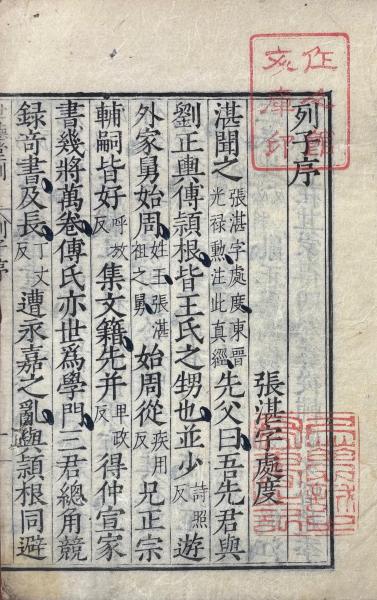 列子序
張湛字處度
湛聞之張湛字處度東晉光禄勳注此真經先父曰吾先君與
劉正輿傅頴根皆王氏之甥也並少詩照反遊
外家舅始周姓王張湛祖之舅始周從疾用反兄正宗
輔嗣皆好呼放反集文籍先并甲政反得仲宣家
書幾將萬卷傅氏亦世爲學門三君總角競
録奇書及長丁丈反遭永嘉之亂與頴根同避